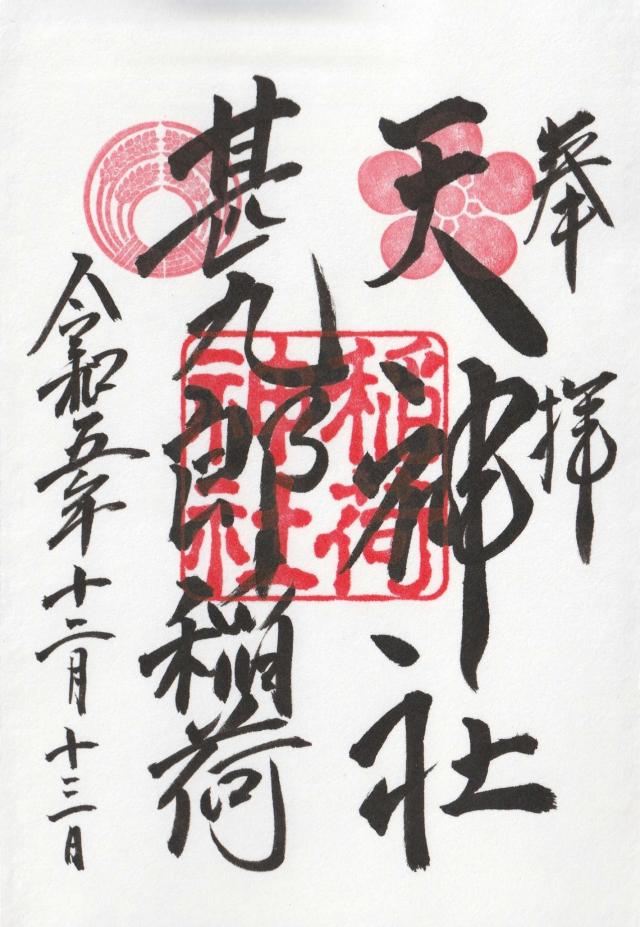 奉拝
天神社
甚九郎稲荷
令和五年十二月十三日
稲荷
神社